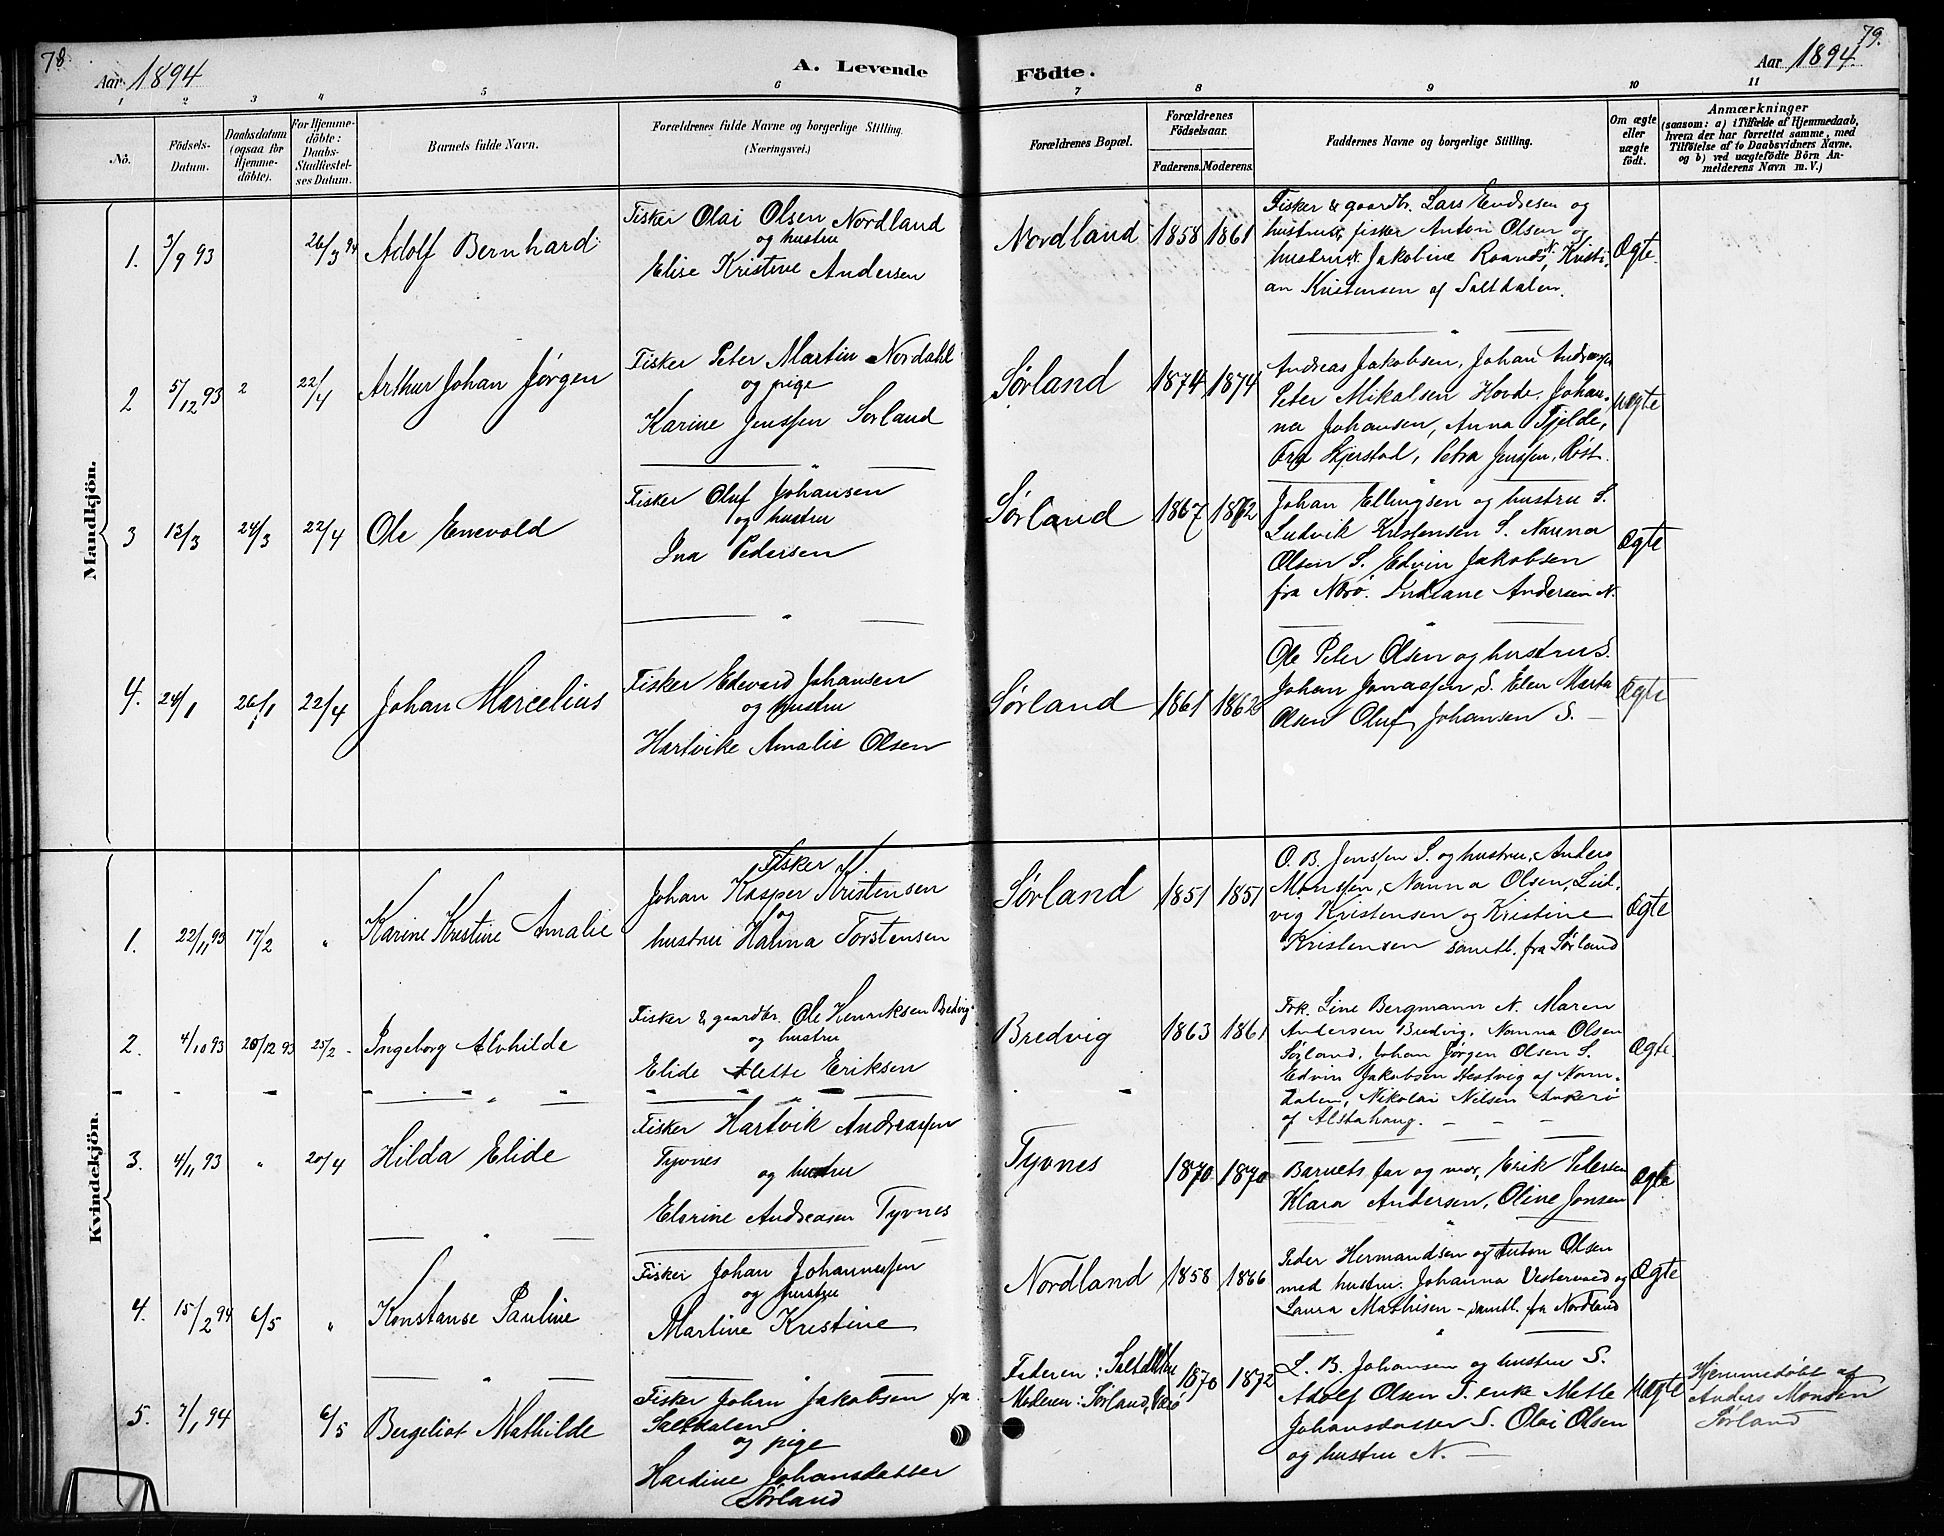 78.
Aar 1894
A. Levende
1 2 3 4 5 6
No.
Födsels-
Datum.
Daabsdatum
(ogsaa for
Hjemme-
döbte).
For Hjemme-
döbte:
Daabs-
Stadfæstel-
ses Datum.
Barnets fulde Navn.
Forældrenes fulde Navne og borgerlige Stilling.
(Næringsvei.)
Mandkjön.
1. 3/9 93 26/3 94 Adolf Bernhard
Fisker Olai Olsen Nordland
og hustru
Elise Kristine Andersen
2 5/12 93 2 22/4 Arthur Johan Jørgen
Fisker Peter Martin Nordahl
og pige
Karine Jenssen Sørland
3 13/3 24/3 22/4 Ole Enevold
Fisker Oluf Johansen
og hustru
Ina Pedersen
4. 24/1 26/1 22/4 Johan Marcelius
Fisker Edevard Johansen
og hustru
Hartvike Amalie Olsen
Kvindekjön.
1. 22/11 93 17/2 " Karine Kristine Amalie
Fisker
Johan Kasper Kristensen
og
hustru Halma Torstensen
2. 4/10 93 28/12 93 25/2 - Ingeborg Alvhilde
Fisker & gaardbr. Ole Henriksen Bredvig
og hustru
Elide Alette Eriksen
3. 4/11 93 " 20/4 Hilda Elide
Fisker Hartvik Andreassen
Tyvnes og hustru
Elorine Andreasen Tyvnes
4. 15/2 94 6/5 " Konstanse Pauline
Fisker Johan Johannessen
og hustru
Martine Kristine
5. 2/1 94 6/5 Bergeliot Mathilde
Fisker Johan Jakobsen fra
Saltdalen
og pige
Hardine Johansdatter
Sørland
79.
Födte.
Aar 1894.
7 8 9 10 11
Forældrenes Bopæl.
Forældrenes
Födselsaar.
Faderens. Moderens.
Faddernes Navne og borgerlige Stilling.
Om ægte
eller
uægte
födt.
Anmærkninger
(saasom: a) i Tilfælde af Hjemmedaab,
hvem der har forrettet samme, med
Tilföielse af to Daabsvidners Navne,
og b) ved uægtefödte Börn An-
melderens Navn m. V.)
Nordland 1858 1861
Fisker & gaardbr. Lars Endresen og
hustru N. fisker Anton Olsen og
hustru N. Jakobine Roands N. Kristi-
an Kristensen af Saltdalen.
Ægte.
Sørland 1874 1874
Andreas Jakobsen, Johan Andreassen
Peter Mikalsen Hovde, Johan-
na Johansen, Anna Fjelde,
Petra Jenssen, Røst.
uægte
Sørland 1867 1862
Johan Ellingsen og hustru S.
Ludvik Kristensen S. Nanna
Olsen S. Edvin Jakobsen
fra Nærø. Indiane Andersen N.
Ægte
Sørland 1861 1862
Ole Peter Olsen og hustru S.
Johan Jonassen, S. Elen Marta
Olsen Oluf Johansen S. —
Ægte
Sørland 1851 1851
O. B. Jenssen S. og hustru, Anders
Monssen, Nanna Olsen, Lud-
vig Kristensen og Kristine
Kristensen samtl. fra Sørland
Ægte
Bredvig 1863 1861
Frk. Line Bergmann N. Maren
Andersen Bredvig, Nanna Olsen
Sørland, Johan Jørgen Olsen S.
Edvin Jakobsen Hestvig af Nam-
dalen, Nikolai Nilsen Ankerø
af Alstahaug.
Ægte
Tyvnes 1870 1870
Barnets far og mor, Erik Petersen
Klara Andersen, Oline Jensen
Ægte
Nordland 1858 1866
Peder Hermandsen og Anton Olsen
med hustru. Johanna Vestervaed og
Laura Mathisen – samtl. fra Nordland
Ægte
Faderen: Saltdalen
Moderen: Sørland, Værø
1870 1872
L. B. Johansen og hustru S.
Adolf Olsen S. enke Mette
Johansdatter S. Olai Olsen
og hustru N. —
Uægte
Hjemmedøbt af
Anders Monsen
Sørland